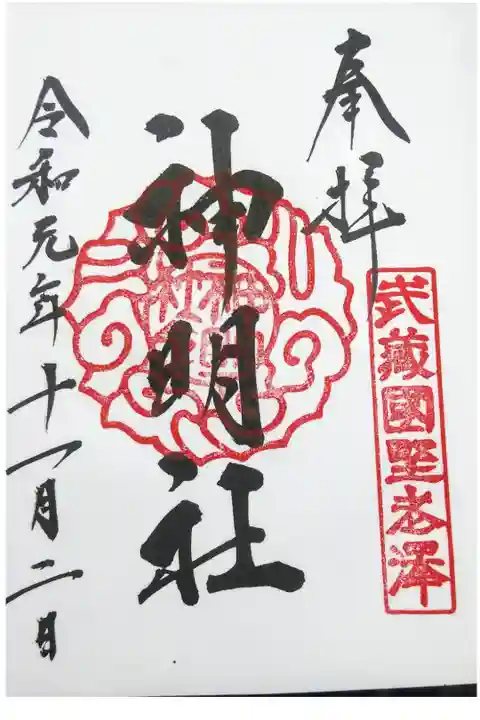 奉拝
武蔵國野老澤
神明社
神明社
令和元年十一月二日